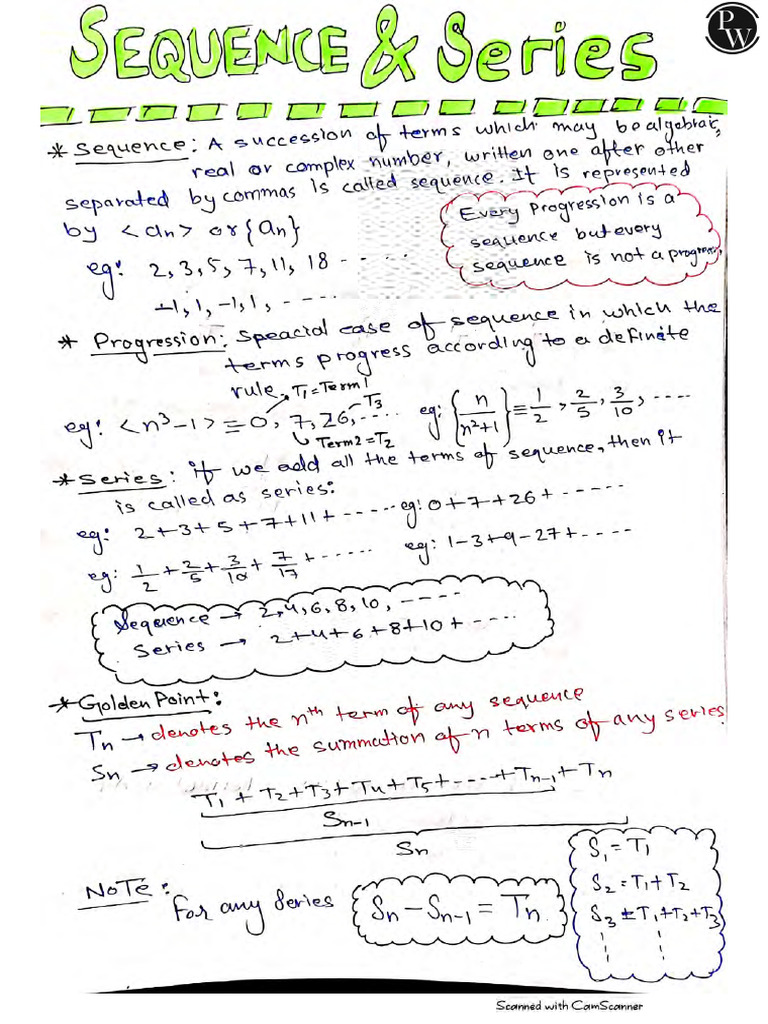 SEQUENCE & Series
PW
* Sequence: A succession of terms which may be algebraic,
real or complex number, written one after other
separated by commas is called sequence. It is represented
by <an> or {an}
Every Progression is a
sequence but every
sequence is not a progress
eg: 2, 3, 5, 7, 11, 18 - - - - -
-1, 1, -1, 1, - - - - -
* Progression: Speacial case of sequence in which the
terms progress according to a definite
rule. T1 = Term 1
T3
eg: <n³-1> = 0, 7, 26, - - - -
eg: {n/n²+1} ≡ 1/2, 2/5, 3/10, - - - -
Term 2 = T2
* Series: if we add all the terms of sequence, then it
is called as series:
eg: 2+3+5+7+11+ - - - - - eg: 0+7+26+ - - - - -
eg: 1/2 + 2/5 + 3/10 + 7/17 + - - - - - eg: 1-3+9-27+ - - - -
Sequence → 2, 4, 6, 8, 10, - - - -
Series → 2+4+6+8+10+ - - - -
* Golden Point:
Tn → denotes the nth term of any sequence
Sn → denotes the summation of n terms of any series
T1 + T2 + T3 + T4 + T5 + - - - - + Tn-1 + Tn
Sn-1
Sn
NOTE: For any Series
Sn - Sn-1 = Tn
S1 = T1
S2 = T1+T2
S3 = T1+T2+T3
Scanned with CamScanner